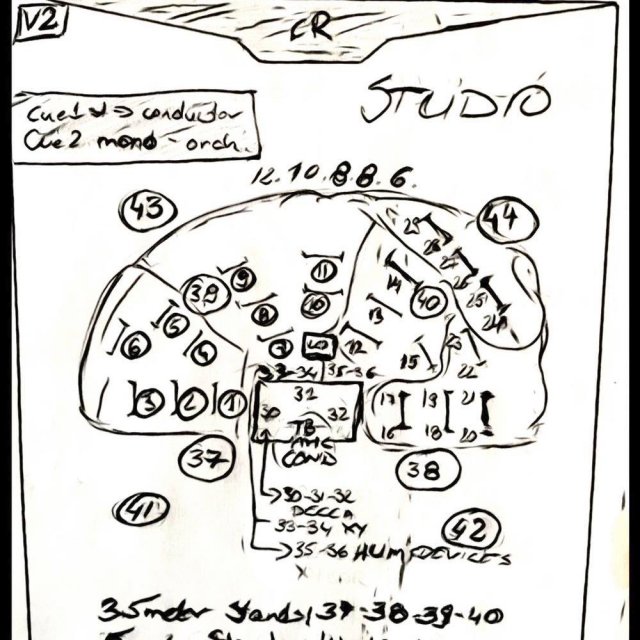 V2
CR
STUDIO
Cue1 st => conductor
Cue2 mono - orch.
12.10.8.8.6.
43
44
29
28
27
26
25
24
39
9
11
14
40
8
10
13
5
6
4
7
12
15
23
22
33-34
35-36
3
2
1
30
31
32
17
16
19
18
21
20
TB
MIC
COND
37
38
41
42
30-31-32
DECCA
33-34 XY
35-36 HUM DEVICES
3.5 meter Stands! 37-38-39-40